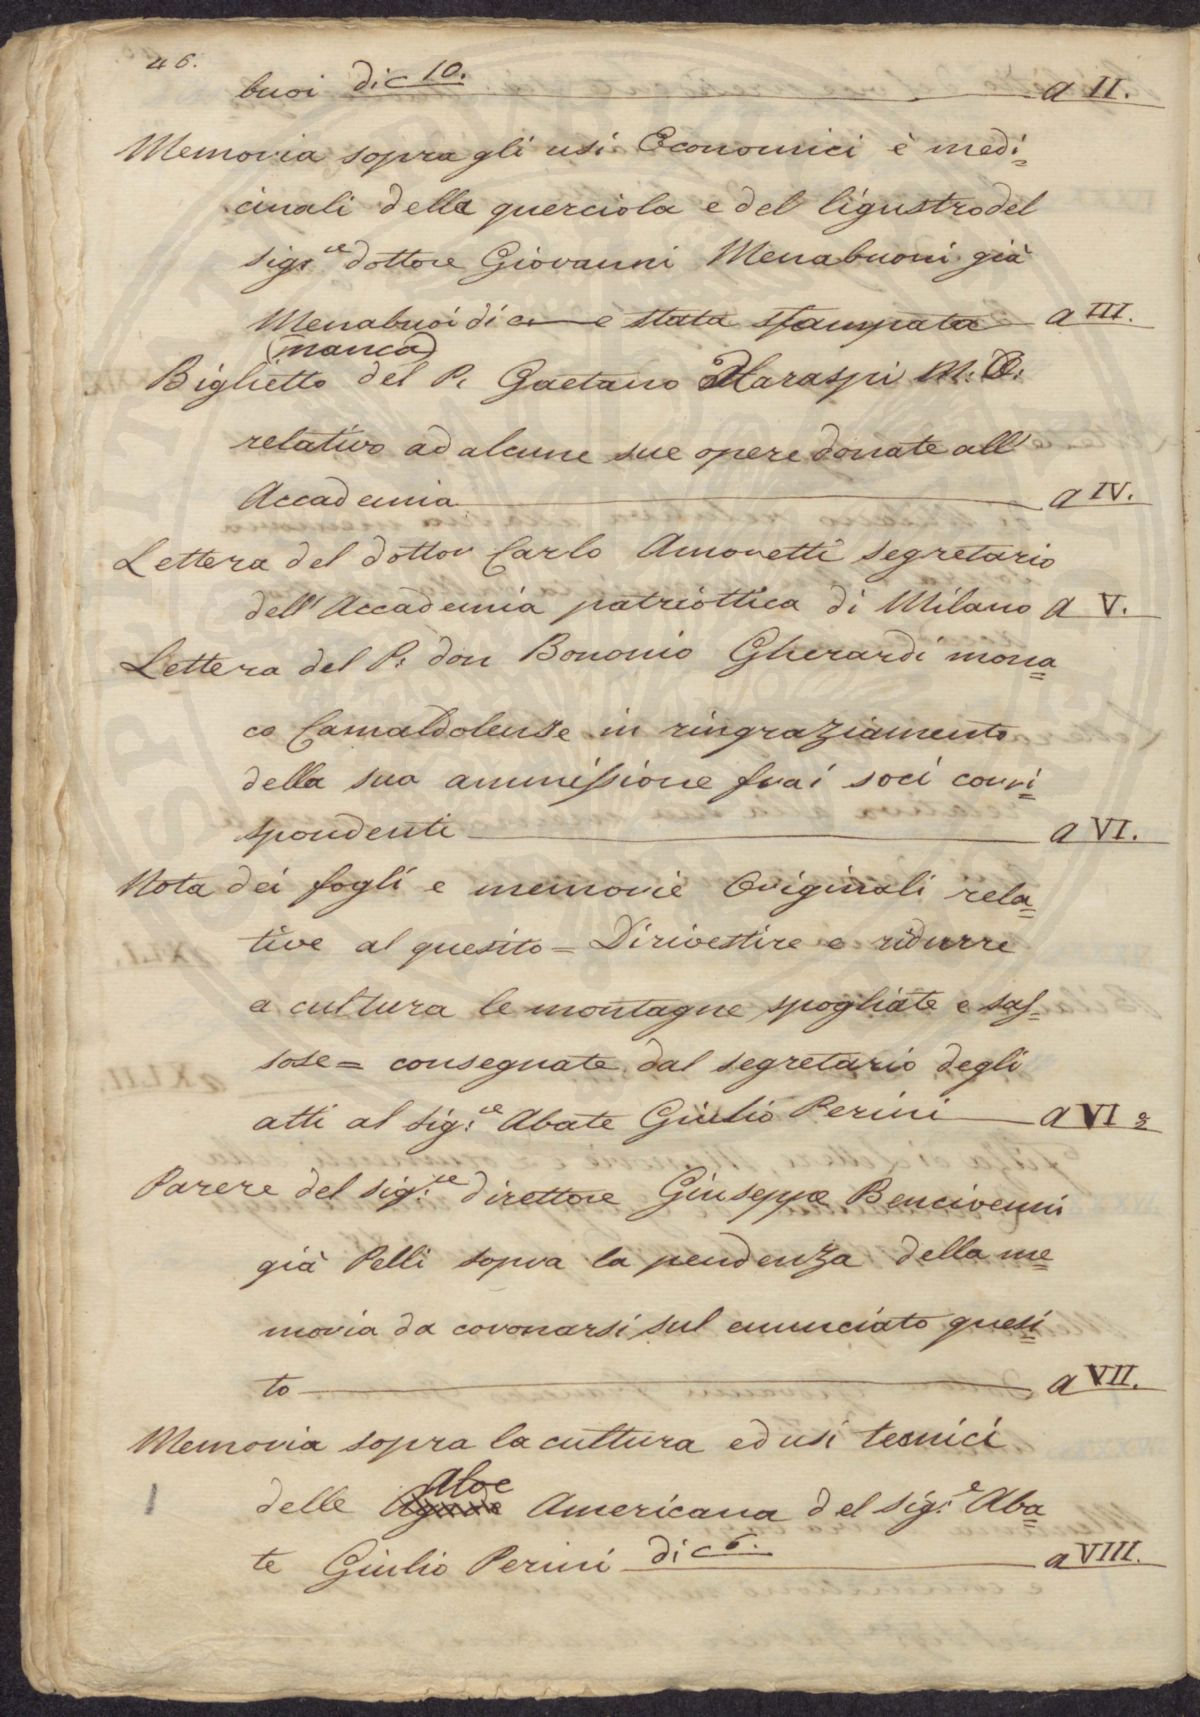 46.
buoi di c 10. a II.
Memoria sopra gli usi Economici è medi=
cinali della querciola e del ligustro del
sigr.re dottore Giovanni Menabuoni già
Menabuoi di c. e stata stampata a III.
(manca)
Biglietto del P. Gaetano Haraspi M. O.
relativo ad alcune sue opere donate all'
Accademia a IV.
Lettera del dottor Carlo Amoretti segretario
dell'Accademia patriottica di Milano a V.
Lettera del P: don Bononio Gherardi mona=
co Camaldolense in ringraziamento
della sua ammissione frai soci corri=
spondenti a VI.
Nota dei fogli e memorie Originali rela=
tive al quesito = Dirivestire e ridurre
a cultura le montagne spogliate e sas=
sose = consegnate dal segretario degli
atti al sig:re Abate Giulio Perini a VI 2
Parere del sig:re direttore Giuseppe Bencivenni
già Pelli sopra la pendenza della me=
moria da coronarsi sul enunciato quesi=
to a VII.
Memoria sopra la cultura ed usi tecnici
delle Aloe Americana del sig:e Aba=
te Giulio Perini di c 6. a VIII.